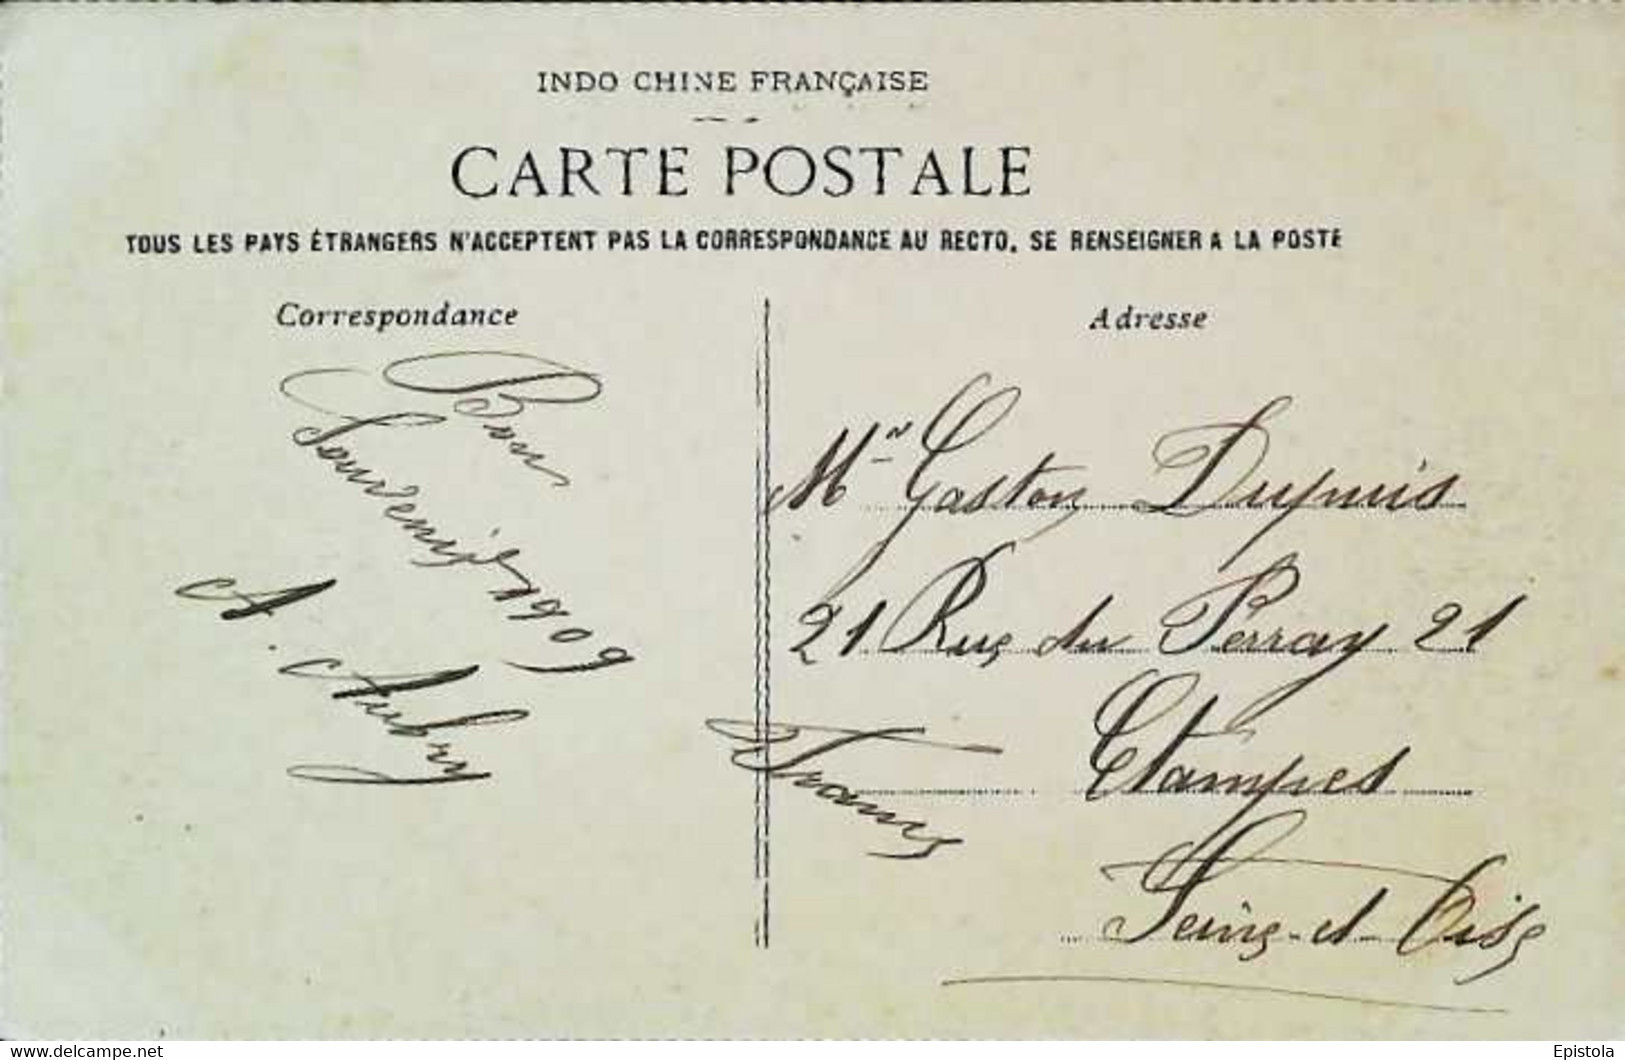 INDO CHINE FRANÇAISE
CARTE POSTALE
TOUS LES PAYS ÉTRANGERS N'ACCEPTENT PAS LA CORRESPONDANCE AU RECTO. SE RENSEIGNER A LA POSTE
Correspondance
Bon
Souvenir 1909
A. Aubry
Adresse
Mr Gaston Dupuis
21 Rue du Perray 21
Etampes
Seine-et Oise
France
www.delcampe.net
Epistola